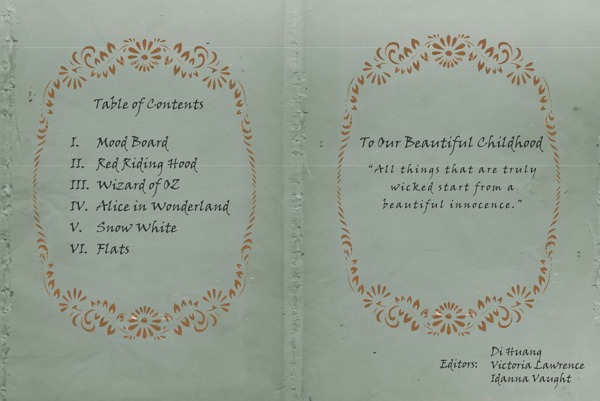 Table of Contents
I. Mood Board
II. Red Riding Hood
III. Wizard of OZ
IV. Alice in Wonderland
V. Snow White
VI. Flats
To Our Beautiful Childhood
"All things that are truly
wicked start from a
beautiful innocence."
Editors:
Di Huang
Victoria Lawrence
Idanna Vaught